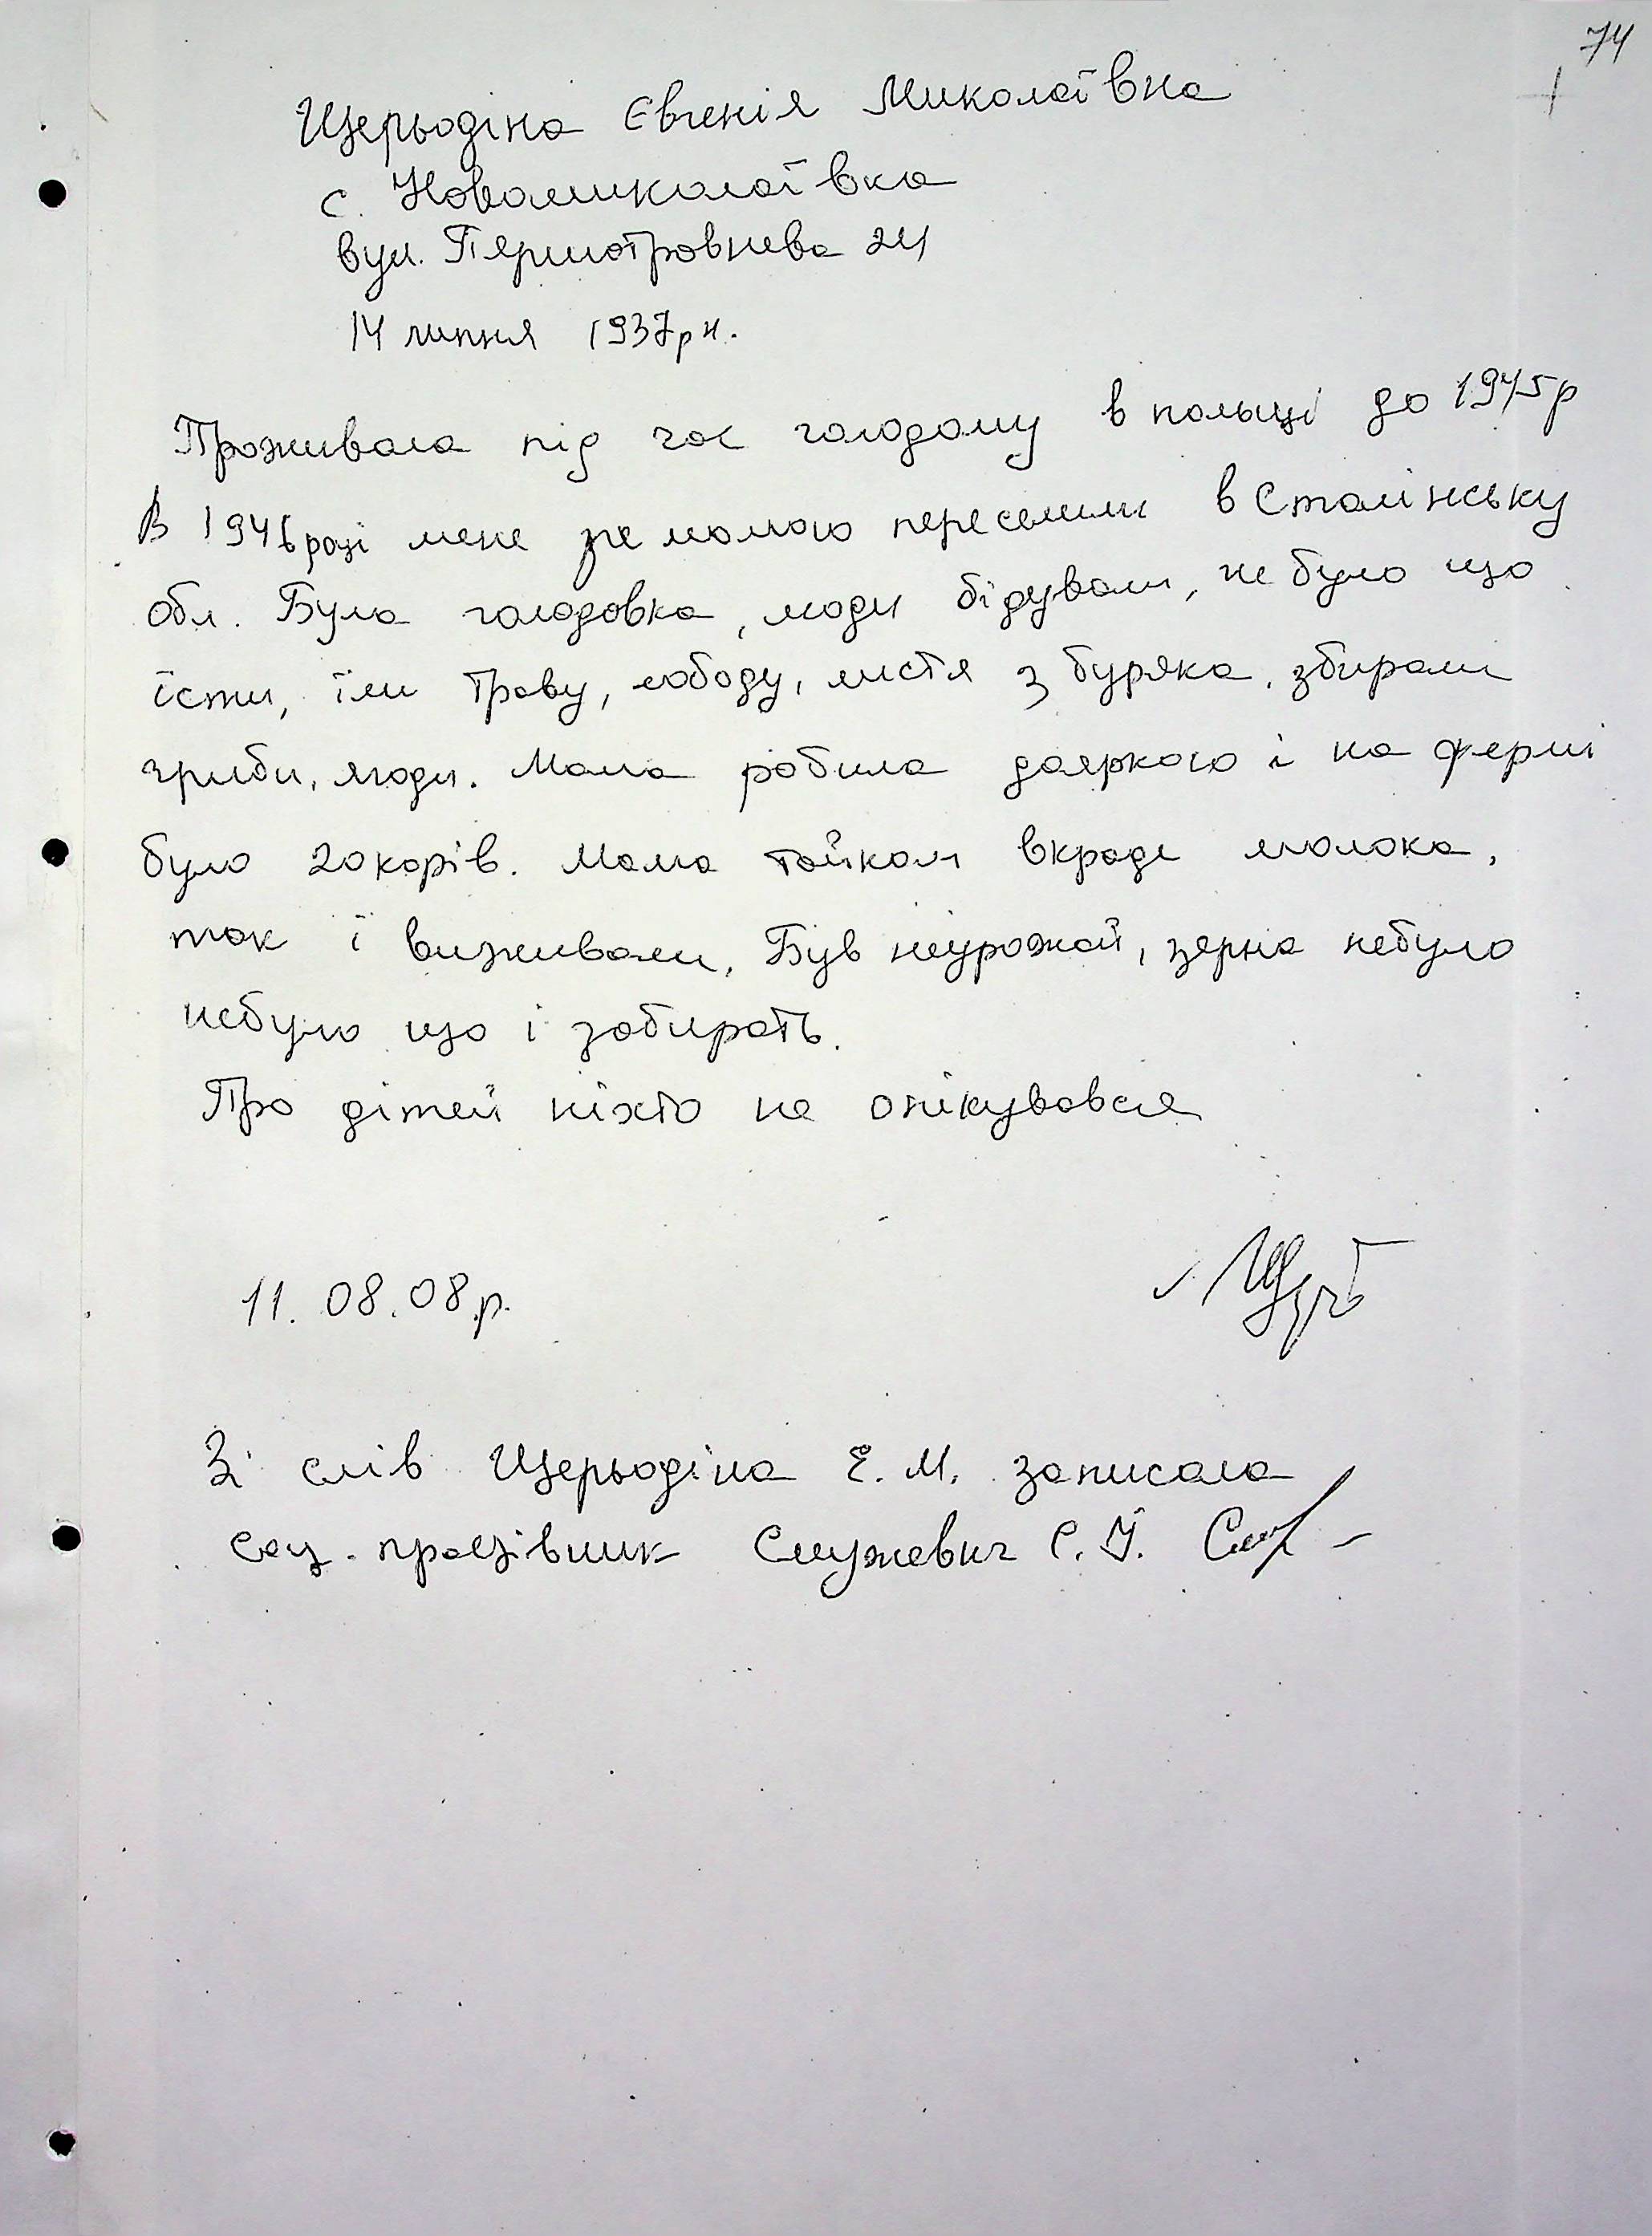 74
Щерьодіна Євгенія Миколаївна
с. Новомиколаївка
вул. Першотровнева 24
14 липня 1937р н.
Проживала під час голодому в польщі до 1945р
В 1946 році мене зе мамою переселили в Сталінську
обл. Була голодовка, люди бідували, не було що
їсти, їли траву, лободу, листя з буряка, збирали
гриби, ягоди. Мама робила дояркою і на фермі
було 20 корів. Мама тайком вкраде молока,
так ї виживали, Був неурожай, зерна небуло
небуло що і забирать.
Про дітей ніхто не опікувався
11. 08. 08.р.
Зі слів Щерьодіна Е. М. записала
Соц. працівник Служевич С. У.